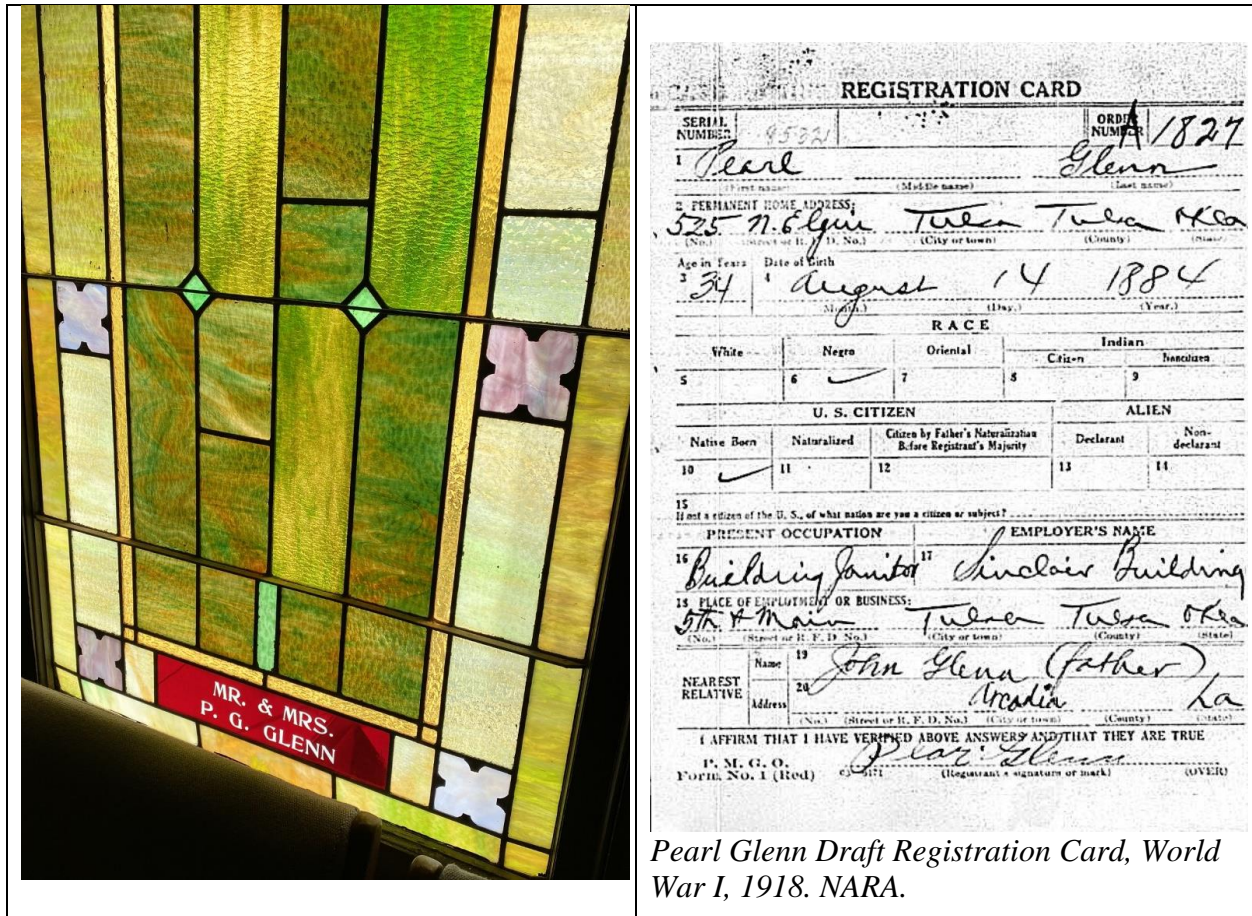 MR. & MRS.
P. G. GLENN
REGISTRATION CARD
SERIAL NUMBER 8532 ORDER NUMBER A 1827
1 Pearl Glenn
(First name) (Middle name) (Last name)
2 PERMANENT HOME ADDRESS:
525 N. Elgin Tulsa Tulsa Okla
(No.) (Street or R. F. D. No.) (City or town) (County) (State)
Age in Years Date of Birth
3 34 4 August 14 1884
(Month.) (Day.) (Year.)
RACE
White Negro Oriental Indian
Citizen Noncitizen
5 6 7 8 9
U. S. CITIZEN ALIEN
Native Born Naturalized Citizen by Father's Naturalization Before Registrant's Majority Declarant Non-declarant
10 11 12 13 14
15
If not a citizen of the U. S., of what nation are you a citizen or subject?
PRESENT OCCUPATION EMPLOYER'S NAME
16 Building Janitor 17 Sinclair Building
18 PLACE OF EMPLOYMENT OR BUSINESS:
5th & Main Tulsa Tulsa Okla
(No.) (Street or R. F. D. No.) (City or town) (County) (State)
NEAREST RELATIVE Name 19 John Glenn (father)
Address 20 Arcadia La
(No.) (Street or R. F. D. No.) (City or town) (County) (State)
I AFFIRM THAT I HAVE VERIFIED ABOVE ANSWERS AND THAT THEY ARE TRUE
P. M. G. O.
Form No. 1 (Red) Pearl Glenn
(Registrant's signature or mark) (OVER)
Pearl Glenn Draft Registration Card, World
War I, 1918. NARA.